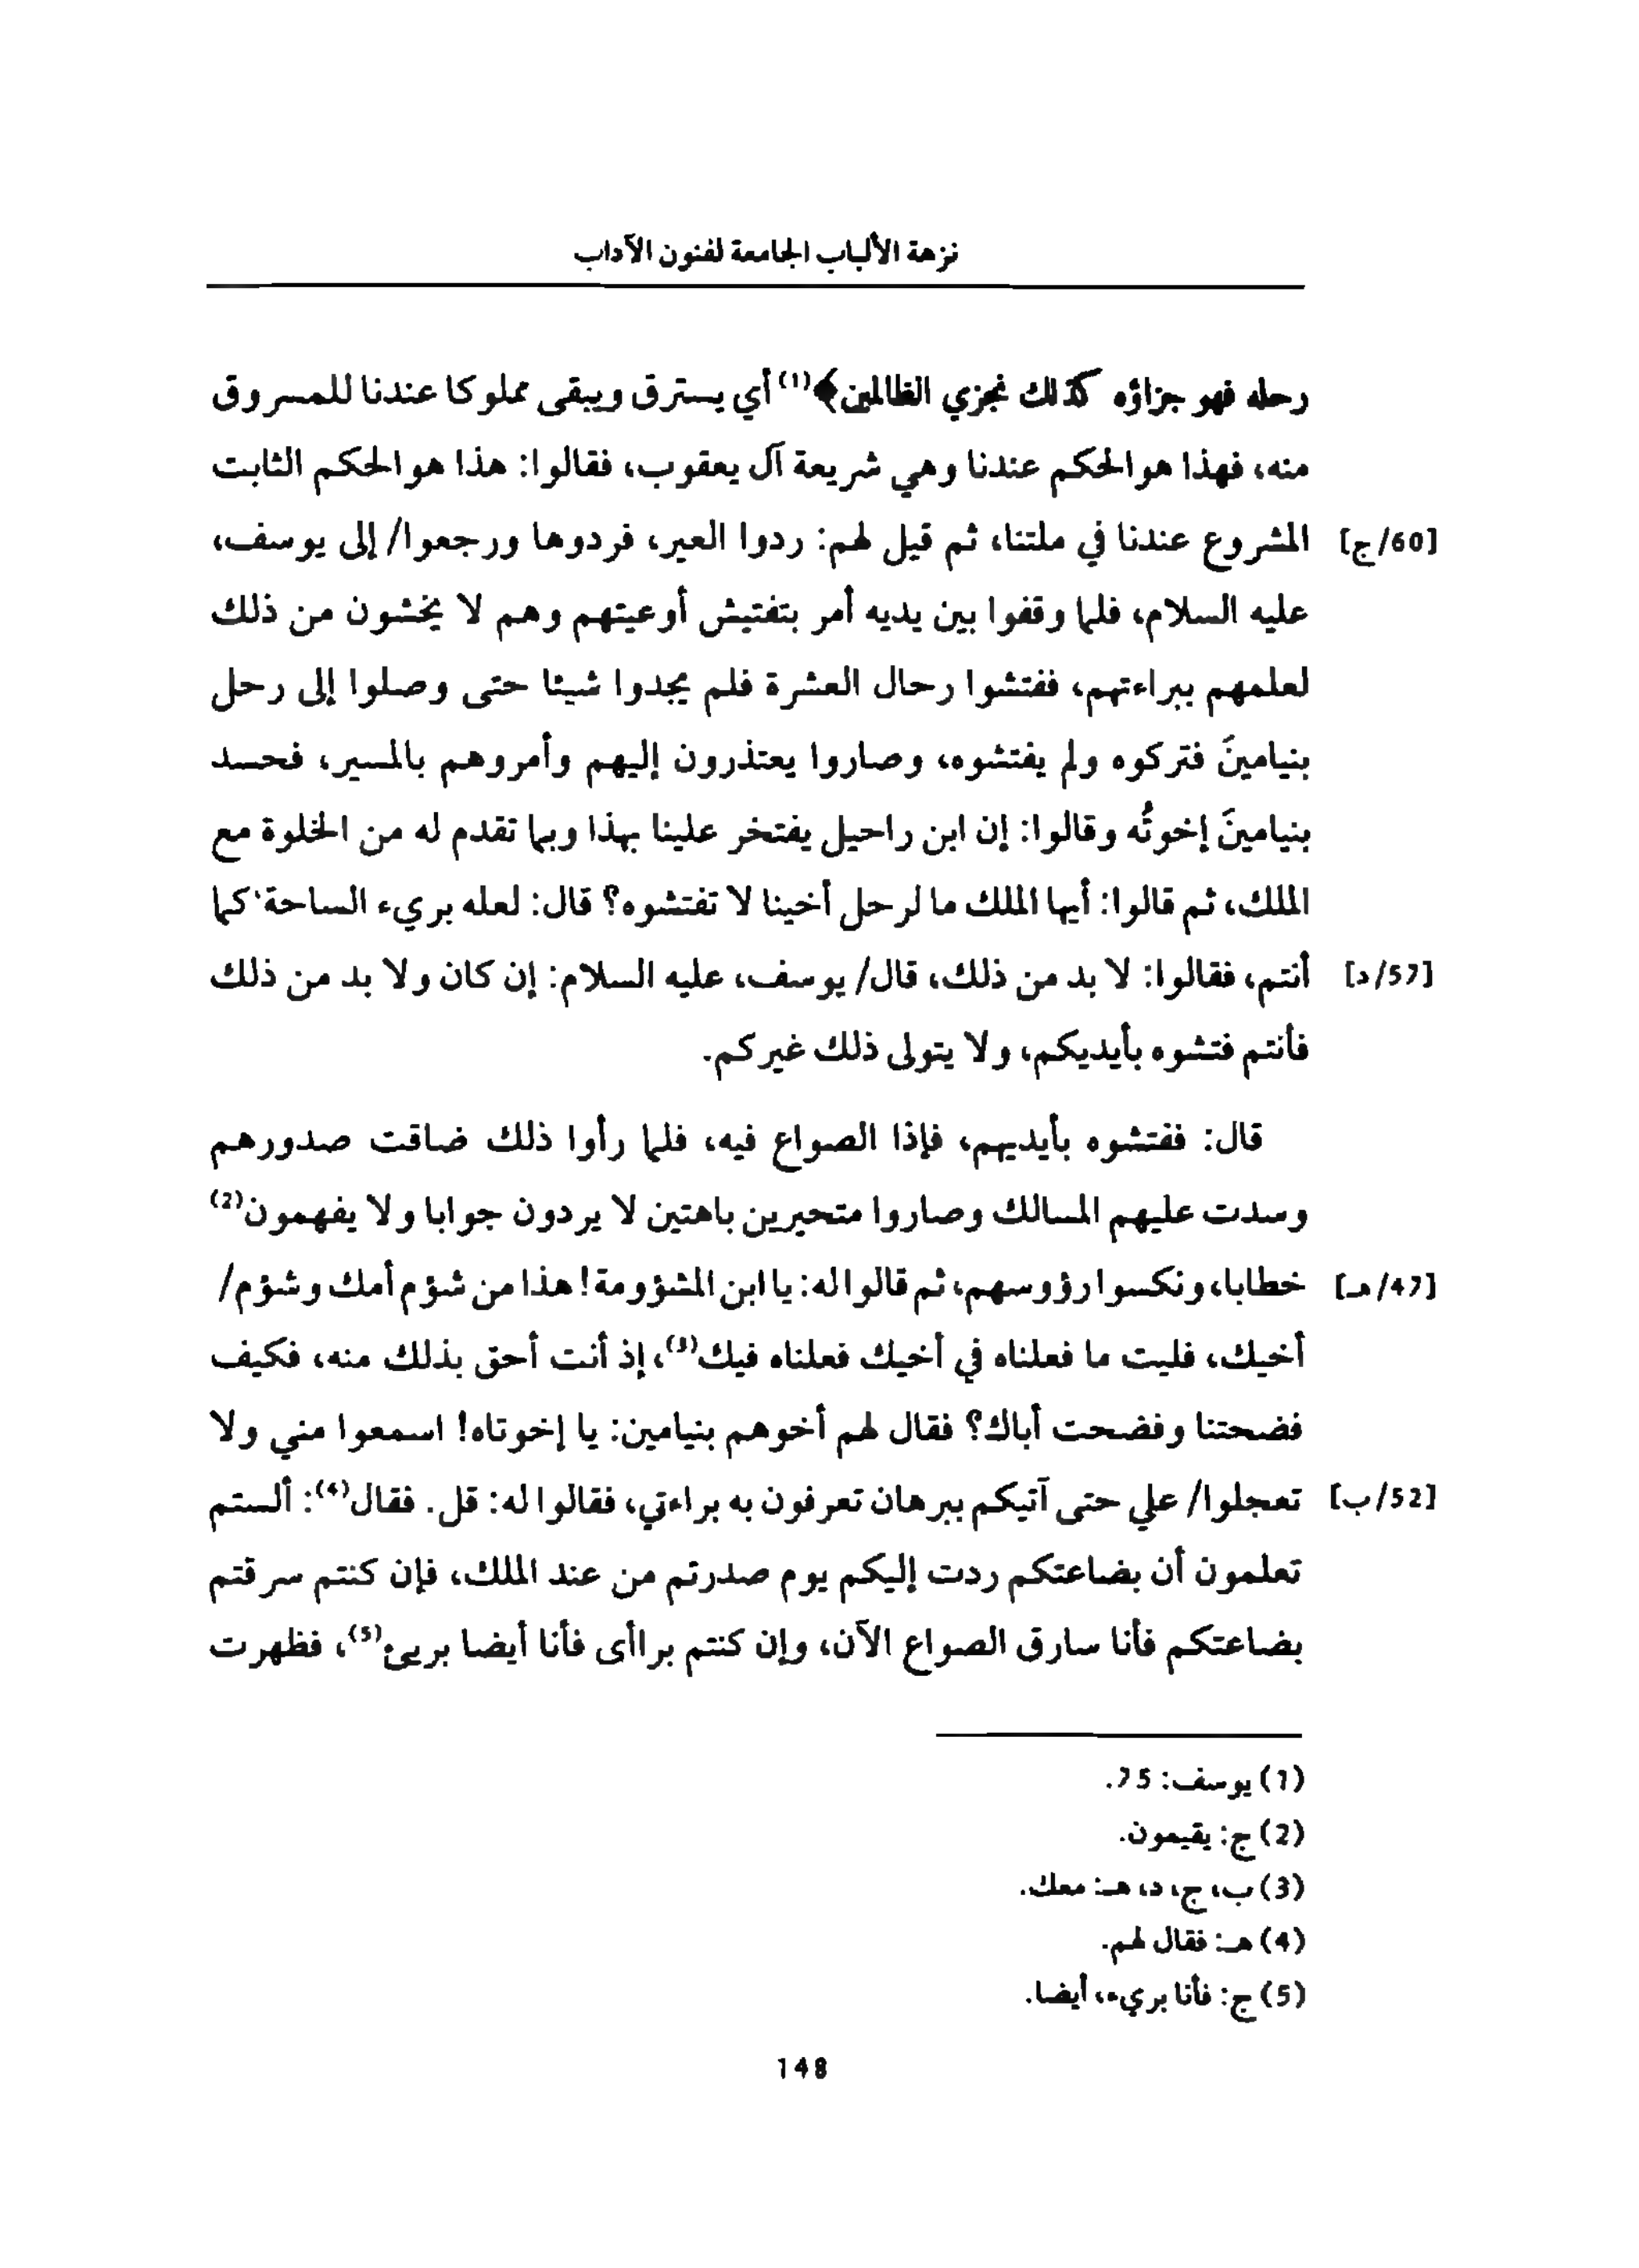 نزهة الألباب الجامعة لفنون الآداب
رحله فهو جزاؤه كذلك نجزي الظالمين﴾(1) أي يسترق ويبقى مملوكا عندنا للمسروق
منه، فهذا هو الحكم عندنا وهي شريعة آل يعقوب، فقالوا: هذا هو الحكم الثابت
[60/ج] المشروع عندنا في ملتنا، ثم قيل لهم: ردوا العير، فردوها ورجعوا/ إلى يوسف،
عليه السلام، فلما وقفوا بين يديه أمر بتفتيش أوعيتهم وهم لا يخشون من ذلك
لعلمهم ببراءتهم، ففتشوا رحال العشرة فلم يجدوا شيئا حتى وصلوا إلى رحل
بنيامينَ فتركوه ولم يفتشوه، وصاروا يعتذرون إليهم وأمروهم بالمسير، فحسد
بنيامينَ إخوتُه وقالوا: إن ابن راحيل يفتخر علينا بهذا وبما تقدم له من الخلوة مع
الملك، ثم قالوا: أيها الملك ما لرحل أخينا لا تفتشوه؟ قال: لعله بريء الساحة كما
[57/د] أنتم، فقالوا: لا بد من ذلك، قال/ يوسف، عليه السلام: إن كان ولا بد من ذلك
فأنتم فتشوه بأيديكم، ولا يتولى ذلك غيركم.
قال: ففتشوه بأيديهم، فإذا الصواع فيه، فلما رأوا ذلك ضاقت صدورهم
وسدت عليهم المسالك وصاروا متحيرين باهتين لا يردون جوابا ولا يفهمون(2)
[47/هـ] خطابا، ونكسوا رؤوسهم، ثم قالوا له: يا ابن المشؤومة! هذا من شؤم أمك وشؤم/
أخيك، فليت ما فعلناه في أخيك فعلناه فيك(3)، إذ أنت أحق بذلك منه، فكيف
فضحتنا وفضحت أباك؟ فقال لهم أخوهم بنيامين: يا إخوتاه! اسمعوا مني ولا
[52/ب] تعجلوا/ علي حتى آتيكم ببرهان تعرفون به براءتي، فقالوا له: قل. فقال(4): ألستم
تعلمون أن بضاعتكم ردت إليكم يوم صدرتم من عند الملك، فإن كنتم سرقتم
بضاعتكم فأنا سارق الصواع الآن، وإن كنتم براأى فأنا أيضا بريئ(5)، فظهرت
(1) يوسف: 75.
(2) ج: يقيمون.
(3) ب، ج، د، هـ: معك.
(4) هـ: فقال لهم.
(5) ج: فأنا بريء، أيضا.
148